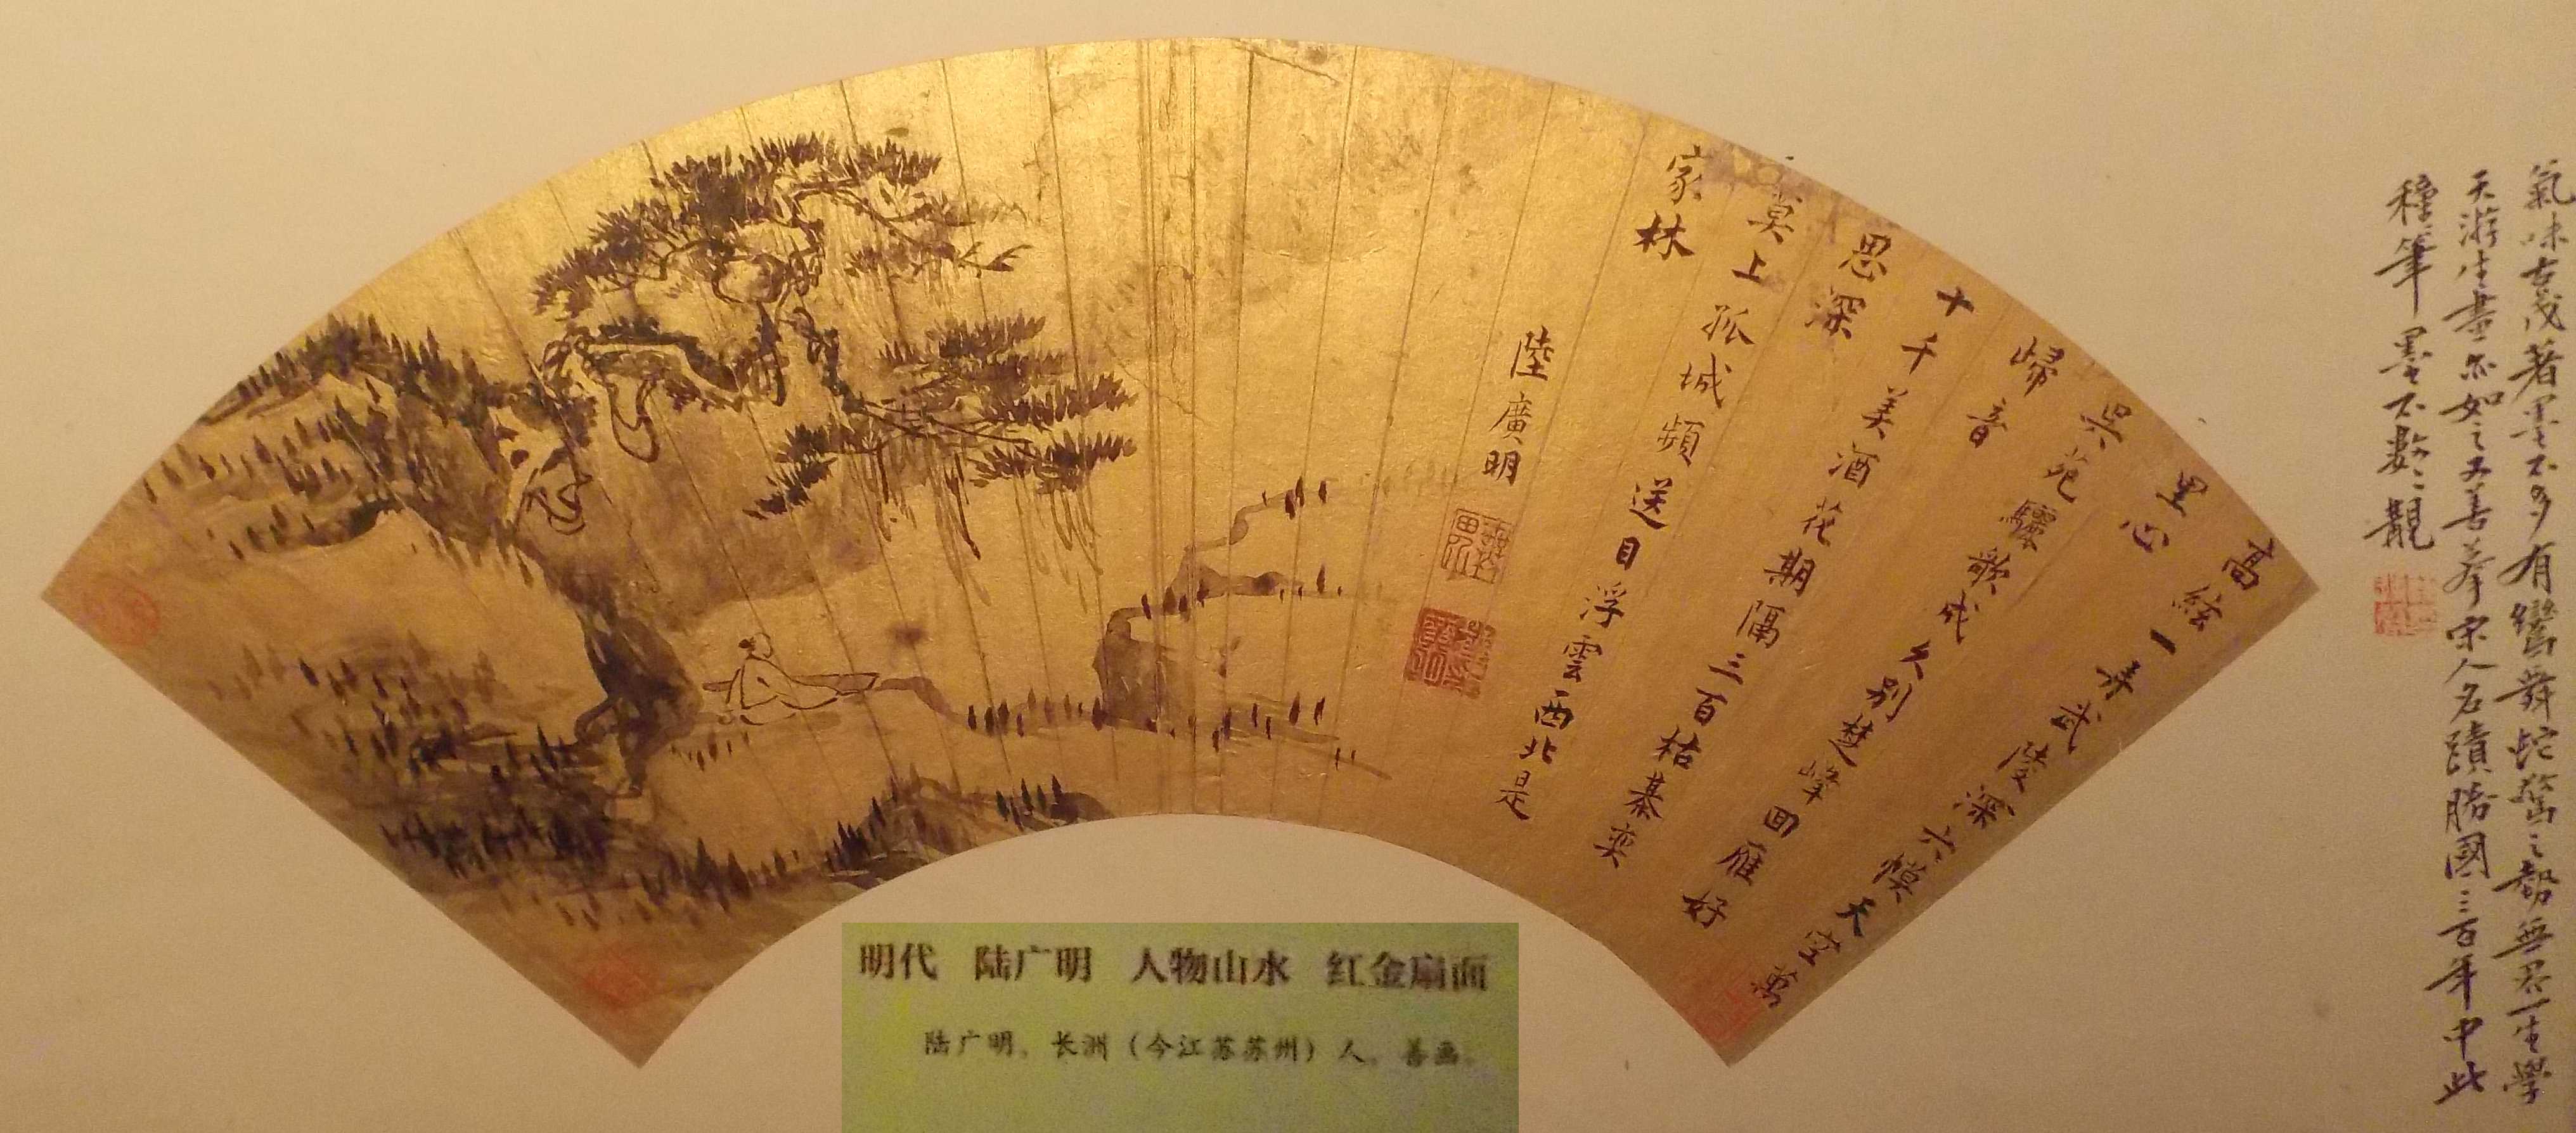 氣味古茂著墨不多有鸞舞蛇驚之勢無忝一生學
天游生畫亦如之又善摹宋人名蹟勝國三百年中此
種筆墨不數數覯
高絃一弄武陵深六幙天空萬
里心
吳苑驪歌成久別楚峰回雁好
歸音
十千美酒花期隔三百枯棊奕
思深
莫上孤城頻送目浮雲西北是
家林
陸廣明
明代 陆广明 人物山水 红金扇面
陆广明，长洲（今江苏苏州）人。善画。